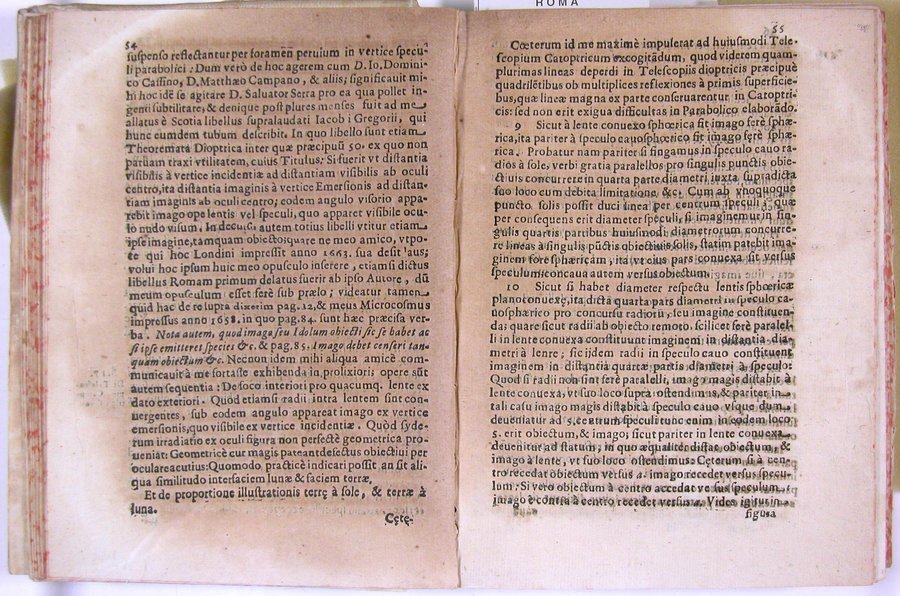 ROMA
54
suspenso reflectantur per foramen peruium in vertice specu-
li parabolici: Dum verò de hoc agerem cum D. Io. Domini-
co Cassino, D. Matthæo Campano, & aliis; significauit mi-
hi hoc idẽ se agitare D. Saluator Serra pro ea qua pollet in-
genti subtilitate, & denique post plures menses fuit ad me
allatus è Scotia libellus supralaudati Iacobi Gregorii, qui
hunc eumdem tubum describit. In quo libello sunt etiam
Theoremata Dioptrica inter quæ præcipuũ 50. ex quo non
paruam traxi vtilitatem, cuius Titulus: Si fuerit vt distantia
visibilis à vertice incidentiæ ad distantiam visibilis ab oculi
centro, ita distantia imaginis à vertice Emersionis ad distan-
tiam imaginis ab oculi centro; codem angulo visorio appa-
rebit imago ope lentis vel speculi, quo apparet visibile ocu-
lo nudo visum. In decursu autem totius libelli vtitur etiam
ipse imagine, tamquam obiecto; quare ne meo amico, vtpo-
te qui hoc Londini impressit anno 1663. sua desit laus;
volui hoc ipsum huic meo opusculo inserere, etiamsi dictus
libellus Romam primum delatus fuerit ab ipso Autore, dũ
meum opusculum esset ferè sub prælo; videatur tamen
quid hac de re supra dixerim pag. 12, & meus Microcosmus
impressus anno 1658. in quo pag. 84. sunt hæc præcisa ver-
ba. Nota autem, quod imago seu Idolum obiecti sic se habet ac
si ipse emitteret species &c. & pag. 85. Imago debet censeri tan-
quam obiectum &c. Necnon idem mihi aliqua amicè com-
municauit à me fortasse exhibenda in prolixiori opere sũt
autem sequentia: De foco interiori pro quacumq. lente ex
dato exteriori. Quòd etiamsi radii intra lentem sint con-
uergentes, sub eodem angulo appareat imago ex vertice
emersionis, quo visibile ex vertice incidentiæ. Quòd syde-
rum irradiatio ex oculi figura non perfectè geometrica pro-
ueniat: Geometricè cur magis pateant defectus obiectiui per
oculare acutius: Quomodo practicè indicari possit an sit ali-
qua similitudo inter faciem lunæ & faciem terræ,
Et de proportione illustrationis terrę à sole, & terræ à
luna.
Cęte-
55
Cœterum id me maximè impulerat ad huiusmodi Tele-
scopium Catoptricum excogitãdum, quod viderem quam-
plurimas lineas deperdi in Telescopiis dioptricis præcipuè
quadrilẽtibus ob multiplices reflexiones à primis superficie-
bus, quæ lineæ magna ex parte conseruarentur in Catoptri-
cis: sed non erit exigua difficultas in Parabolico elaborãdo.
9 Sicut à lente conuexo sphœrica fit imago ferè sphæ-
rica, ita pariter à speculo cauosphœrico fit imago ferè sphæ-
rica. Probatur nam pariter si fingamus in speculo cauo ra-
dios à sole, verbi gratia paralellos pro singulis punctis obie-
cti uis concurrere in quarta parte diametri iuxta supradicta
suo loco cum debita limitatione &c. Cum ab vnoquoque
puncto solis possit duci linea per centrum speculi; quæ
per consequens erit diameter speculi, si imaginemur in sin-
gulis quartis partibus huiusmodi diametrorum concurre-
re lineas à singulis pũctis obiecti solis, statim patebit ima-
ginem fore sphœricam, ita vt eius pars conuexa sit versus
speculum concaua autem versus obiectum.
10 Sicut si habet diameter respectu lentis sphœricæ
planoconuexę, ita dicta quarta pars diametri in speculo ca-
uosphœrico pro concursu radiorũ, seu imagine constituen-
da; quare sicut radii ab obiecto remoto, scilicet ferè paralel-
li in lente conuexa constituunt imaginem in distantia dia-
metri à lente; sic ijdem radii in speculo cauo constituent
imaginem in distantia quartæ partis diametri à speculo:
Quod si radii non sint ferè paralelli, imago magis distabit à
lente conuexa, vt suo loco supra ostendimus, & pariter in
tali casu imago magis distabit à speculo cauo vsque dum
deueniatur ad 5. centrum speculi tunc enim in eodem loco
5. erit obiectum, & imago; sicut pariter in lente conuexa
deuenitur ad statum, in quo æqualiter distat obiectum, &
imago à lente, vt suo loco ostendimus: Cęterum si à cen-
tro recedat obiectum versus 2. imago recedet versus specu-
lum: Si verò obiectum à centro accedat versus speculum
imago è contra à centro recedet versus 2. Vides igitur in
figura